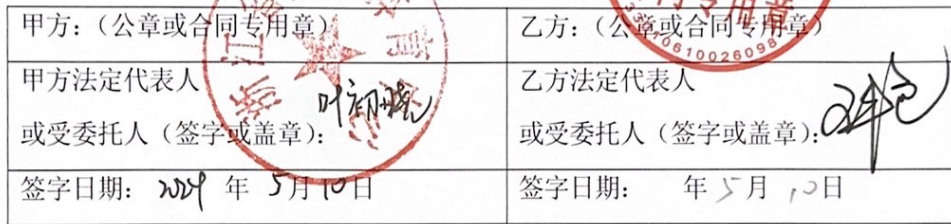 甲方：（公章或合同专用章）
乙方：（公章或合同专用章）
甲方法定代表人
或受委托人（签字或盖章）：
乙方法定代表人
或受委托人（签字或盖章）：
签字日期： 2024 年 5月10日
签字日期： 年 5月 10日
浙江
专用章